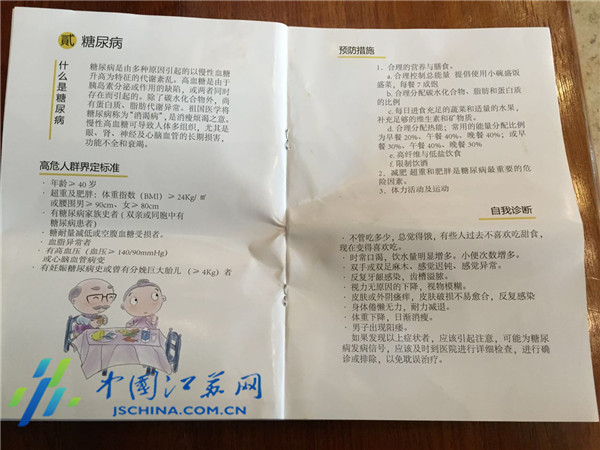 贰 糖尿病
什么是糖尿病
糖尿病是由多种原因引起的以慢性血糖
升高为特征的代谢紊乱。高血糖是由于
胰岛素分泌或作用的缺陷，或两者同时
存在而引起的。除了碳水化合物外，尚
有蛋白质、脂肪代谢异常。祖国医学将
糖尿病称为“消渴病”，是消瘦烦渴之意。
慢性高血糖可导致人体多组织，尤其是
眼、肾、神经及心脑血管的长期损害、
功能不全和衰竭。
高危人群界定标准
· 年龄≥40岁
· 超重及肥胖：体重指数（BMI）≥24Kg/㎡
或腰围男≥90cm、女≥80cm
· 有糖尿病家族史者（双亲或同胞中有
糖尿病患者）
· 糖耐量减低或空腹血糖受损者。
· 血脂异常者
· 有高血压（血压≥140/90mmHg）
或心脑血管病变
· 有妊娠糖尿病史或曾有分娩巨大胎儿（≥4Kg）者
预防措施
1、合理的营养与膳食。
a. 合理控制总能量 提倡使用小碗盛饭
盛菜，每餐7成饱
b. 合理分配碳水化合物、脂肪和蛋白质
的比例
c. 每日进食充足的蔬菜和适量的水果，
补充足够的维生素和矿物质。
d. 合理分配热能；常用的能量分配比例
为早餐20%、午餐40%、晚餐40%；或早
餐30%、午餐40%、晚餐30%
e. 高纤维与低盐饮食
f. 限制饮酒
2、减肥 超重和肥胖是糖尿病最重要的危
险因素。
3、体力活动及运动
自我诊断
· 不管吃多少，总觉得饿，有些人过去不喜欢吃甜食，
现在变得喜欢吃。
· 时常口渴，饮水量明显增多。小便次数增多。
· 双手或双足麻木。感觉迟钝、感觉异常。
· 反复牙龈感染，齿槽溢脓。
· 视力无原因的下降，视物模糊。
· 皮肤或外阴瘙痒，皮肤破损不易愈合，反复感染
· 身体倦懒无力，耐力减退。
· 体重下降，日渐消瘦。
· 男子出现阳痿。
如果发现以上症状者，应该引起注意，可能为糖尿
病发病信号，应该及时到医院进行详细检查，进行确
诊或排除，以免耽误治疗。
中国江苏网
JSCHINA.COM.CN